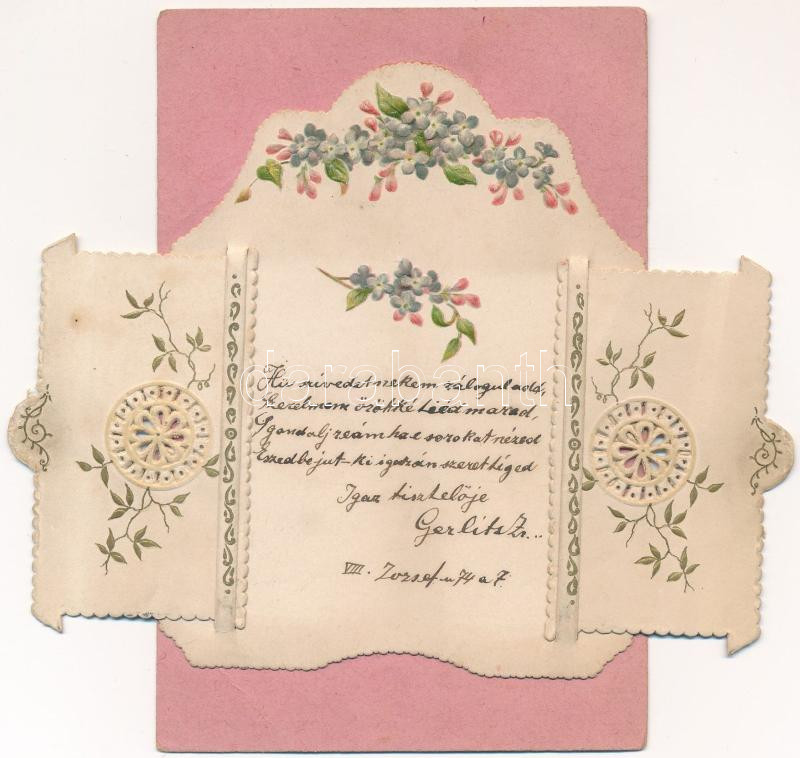 Ha szivedet nekem zálogul adod,
Szerelmem örökké tiéd marad,
S gondolj reám ha e sorokat nézed
Eszedbe jut - ki igazán szeret téged
Igaz tisztelője
Gerlits Zs..
VIII. József-u 74 a 7.
darabanth